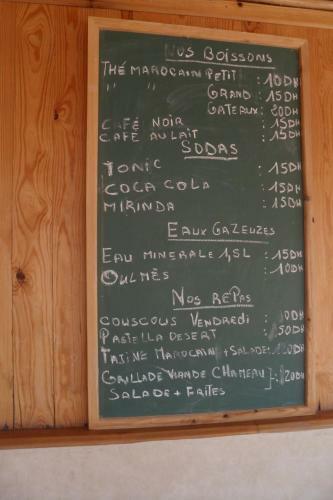 NOS BOISSONS
THÉ MAROCAIN PETIT : 10DH
" " GRAND : 15DH
GATEAUX : 20DH
CAFÉ NOIR : 15DH
CAFÉ AU LAIT : 15DH
SODAS
TONIC : 15DH
COCA COLA : 15DH
MIRINDA : 15DH
EAUX GAZEUZES
EAU MINERALE 1,5L : 15DH
OULMÈS : 10DH
NOS REPAS
COUSCOUS VENDREDI :
PASTELLA DESERT :
TAJINE MAROCAIN + SALADE :
GRILLADE VIANDE CHAMEAU } :
SALADE + FRITES